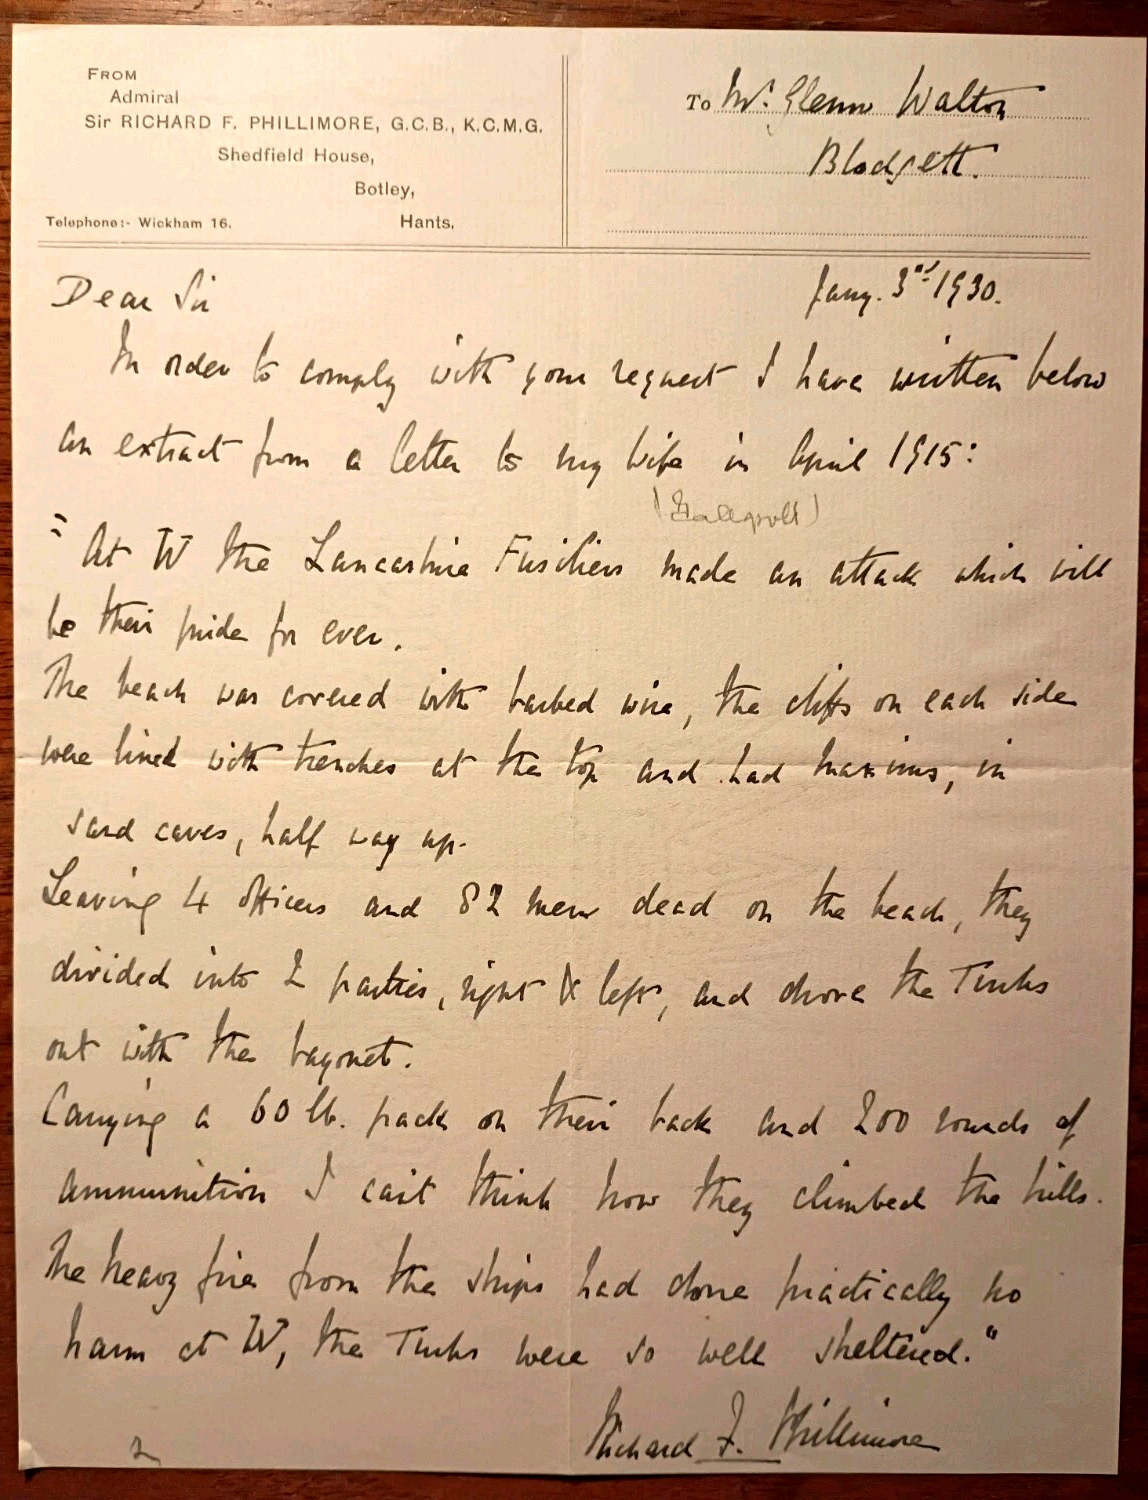 FROM
Admiral
Sir RICHARD F. PHILLIMORE, G.C.B., K.C.M.G.
Shedfield House,
Botley,
Hants.
Telephone:- Wickham 16.
To Mr. Glenn Walton
Blodgett.
Jany. 3rd 1930.
Dear Sir
In order to comply with your request I have written below
an extract from a letter to my wife in April 1915:
(Gallipoli)
"At W the Lancashire Fusiliers made an attack which will
be their pride for ever.
The beach was covered with barbed wire, the cliffs on each side
were lined with trenches at the top and had maxims, in
sand caves, half way up.
Leaving 4 officers and 82 men dead on the beach, they
divided into 2 parties, right & left, and drove the Turks
out with the bayonet.
Carrying a 60 lb. pack on their back and 200 rounds of
ammunition I can't think how they climbed the hills.
The heavy fire from the ships had done practically no
harm at W, the Turks were so well sheltered."
Richard F. Phillimore